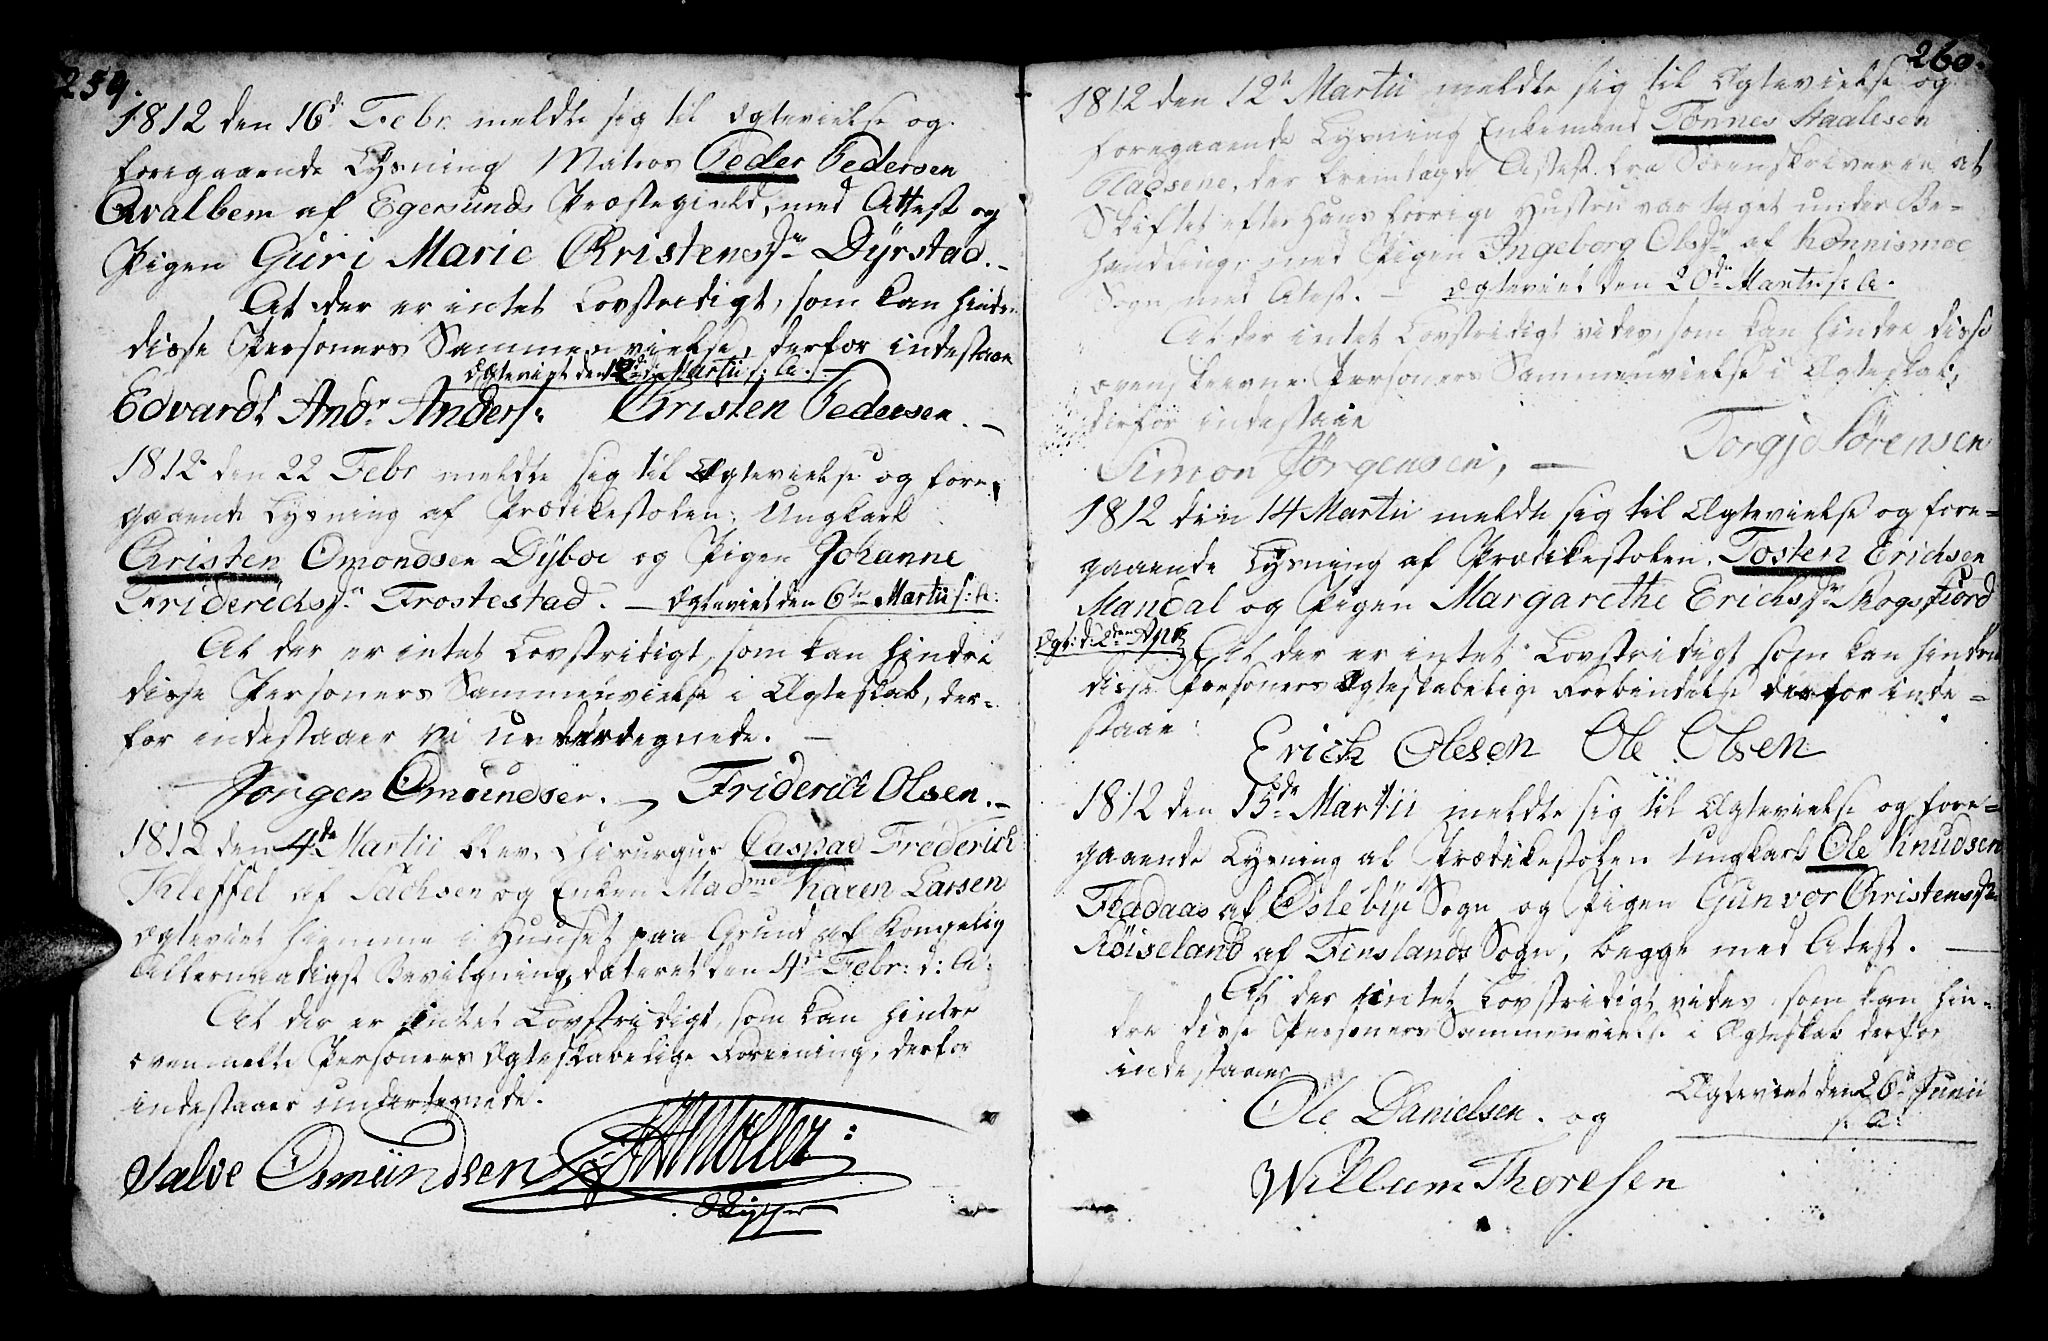 259.
1812 den 16d. Febr. meldte sig til Ægtevielse og
foregaaende Lysning Matros Peder Pedersen
Qvalbem af Egersunds Præstegield, med Attest og
Pigen Guri Marie Christensdr Dÿrstad. –
At der er intet Lovstridigt, som kan hindre
disse Personers Sammenvielse, derfor indestaae
Ægteviet den 12de Martii s: A. –
Edvardt Andr Anders: Christen Pedersen. –
1812 den 22 Febr meldte sig til Ægtevielse og fore-
gaaende Lysning af Prædikestolen: Ungkarl
Christen Omondsen Dÿboe og Pigen Johanne
Friderichsdr Frostestad. – Ægteviet den 6te Martii s: A:
At der er intet Lovstridigt, som kan hindre
disse Personers Sammenvielse i Ægteskab, der-
for indestaaer vi undertegnede. –
Jørgen Omundsen. – Friderich Olsen. –
1812 den 4de Martii blev Chirurgus Caspar Frederich
Kleffel af Sachsen og Enken Madme Karen Larsen
Ægteviet hiemme i Huuset paa Grund af Kongelig
Allernaadigst Bevilgning, dateret den 4de Febr: d: A:
At der er intet Lovstridigt, som kan hindre
ovenmeldte Personers Ægteskabelige Foreening, derfor
indestaaer undertegnede.
Salve Osmündsen Møller:
260.
1812 den 12te Martii meldte sig til Ægtevielse og
foregaaende Lysning Enkemand Tønnes Staalesen
Pladsene, der fremlagde Attest fra Sorenskriveren at
Skiftet efter Hans forrige Hustru var taget under Be-
handling, med Pigen Ingeborg Olsdr af Hønnismoe
Sogn med Atest. – Ægteviet den 20de Martii s: A.
At der intet Lovstridigt vides, som kan hindre disse
ovenskrevne Personers Sammenvielse i Ægteskab,
derfor indestaae
Simon Jörgensen, – Torgje Sörensen
1812 den 14 Martii meldte sig til Ægtevielse og fore-
gaaende Lysning af Prædikestolen. Tosten Erichsen
Mandal og Pigen Margarethe Erichsdr Skogsfiord
Ægt: d: 2den Apr
At der er intet Lovstridigt som kan hindre
disse Personers Ægteskabelige Forbindelse derfor inde-
staae:
Erich Olesen Ole Olsen
1812 den 15de Martii meldte sig til Ægtevielse og fore-
gaaende Lysning af Prædikestolen Ungkarl Ole Knudsen
Fladaas af Öslebye Sogn og Pigen Gunvor Christensdr
Röiseland af Finslands Sogn, begge med Atest. –
At der intet Lovstridigt vides, som kan hin-
dre disse Personers Sammenvielse i Ægteskab derfor
indestaaer
Ægteviet den 26de Junii
s: A:
Ole Danielsen. og
Willum Thoresen